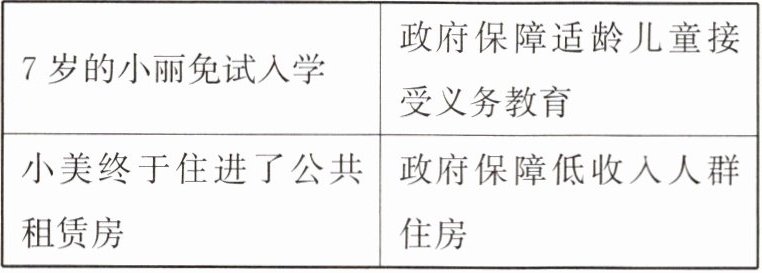 7岁的小丽免试入学
政府保障适龄儿童接
受义务教育
小美终于住进了公共
租赁房
政府保障低收入人群
住房